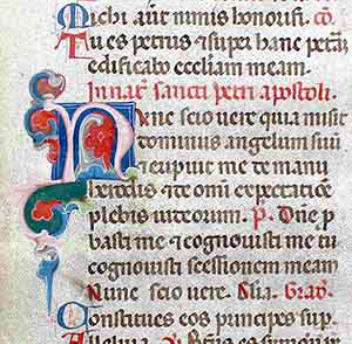 Michi aut̃ nimis honorifi. cõ.
Tu es petrus ⁊ super hanc petrã
edificabo eccliam meam.
In nat̃ sancti petri apostoli.
Nunc scio uere quia misit
dominus angelum suũ
⁊ eripuit me de manu
herodis ⁊ de omĩ expectatiõe
plebis iudeorum. p̃. Dñe p
basti me ⁊ cognouisti me tu
cognouisti sessionem meam
Nunc scio uere. Gl̃ia. Grad̃.
Constitues eos principes sup.
Alleluia.